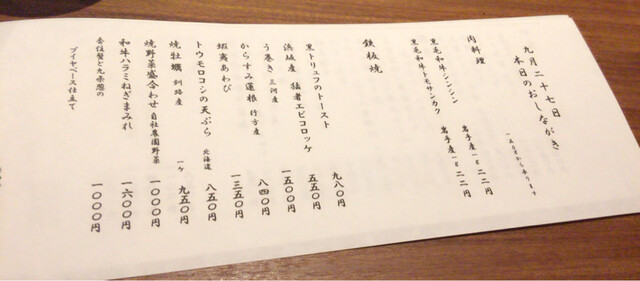 九月二十七日
本日のおしながき
肉料理
黒毛和牛シンシン 岩手産 一g 二二円
黒毛和牛トモサンカク 岩手産 一g 二二円
鉄板焼
黒トリュフのトースト 九八〇円
浜坂産 猛者エビコロッケ 五五〇円
う巻き 三河産 一五〇〇円
からすみ蓮根 行方産 八四〇円
蝦夷あわび 一三五〇円
トウモロコシの天ぷら 北海道 八五〇円
焼牡蠣 釧路産 一ケ 九五〇円
焼野菜盛合わせ 自社農園野菜 一〇〇〇円
和牛ハラミねぎまみれ 一六〇〇円
ブイヤベース仕立て 一〇〇〇円